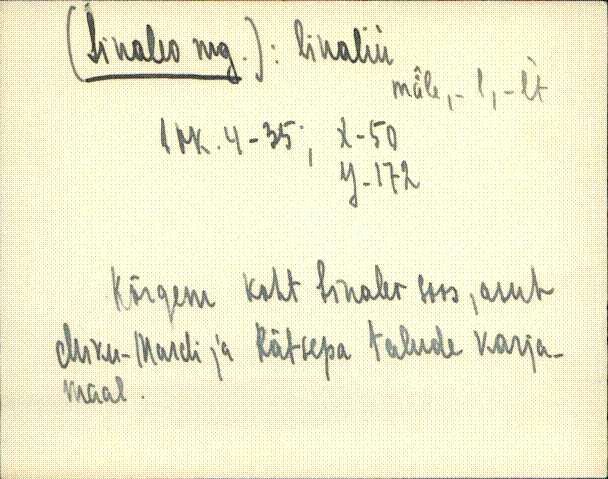 (Sinaleo mg.): Sinaliu
mäle, -l, -lt
1 MK. 4-35; x-50
y-172
Kõrgem koht Sinaleo soos, asub
ja Rätsepa talude karja-
maal.